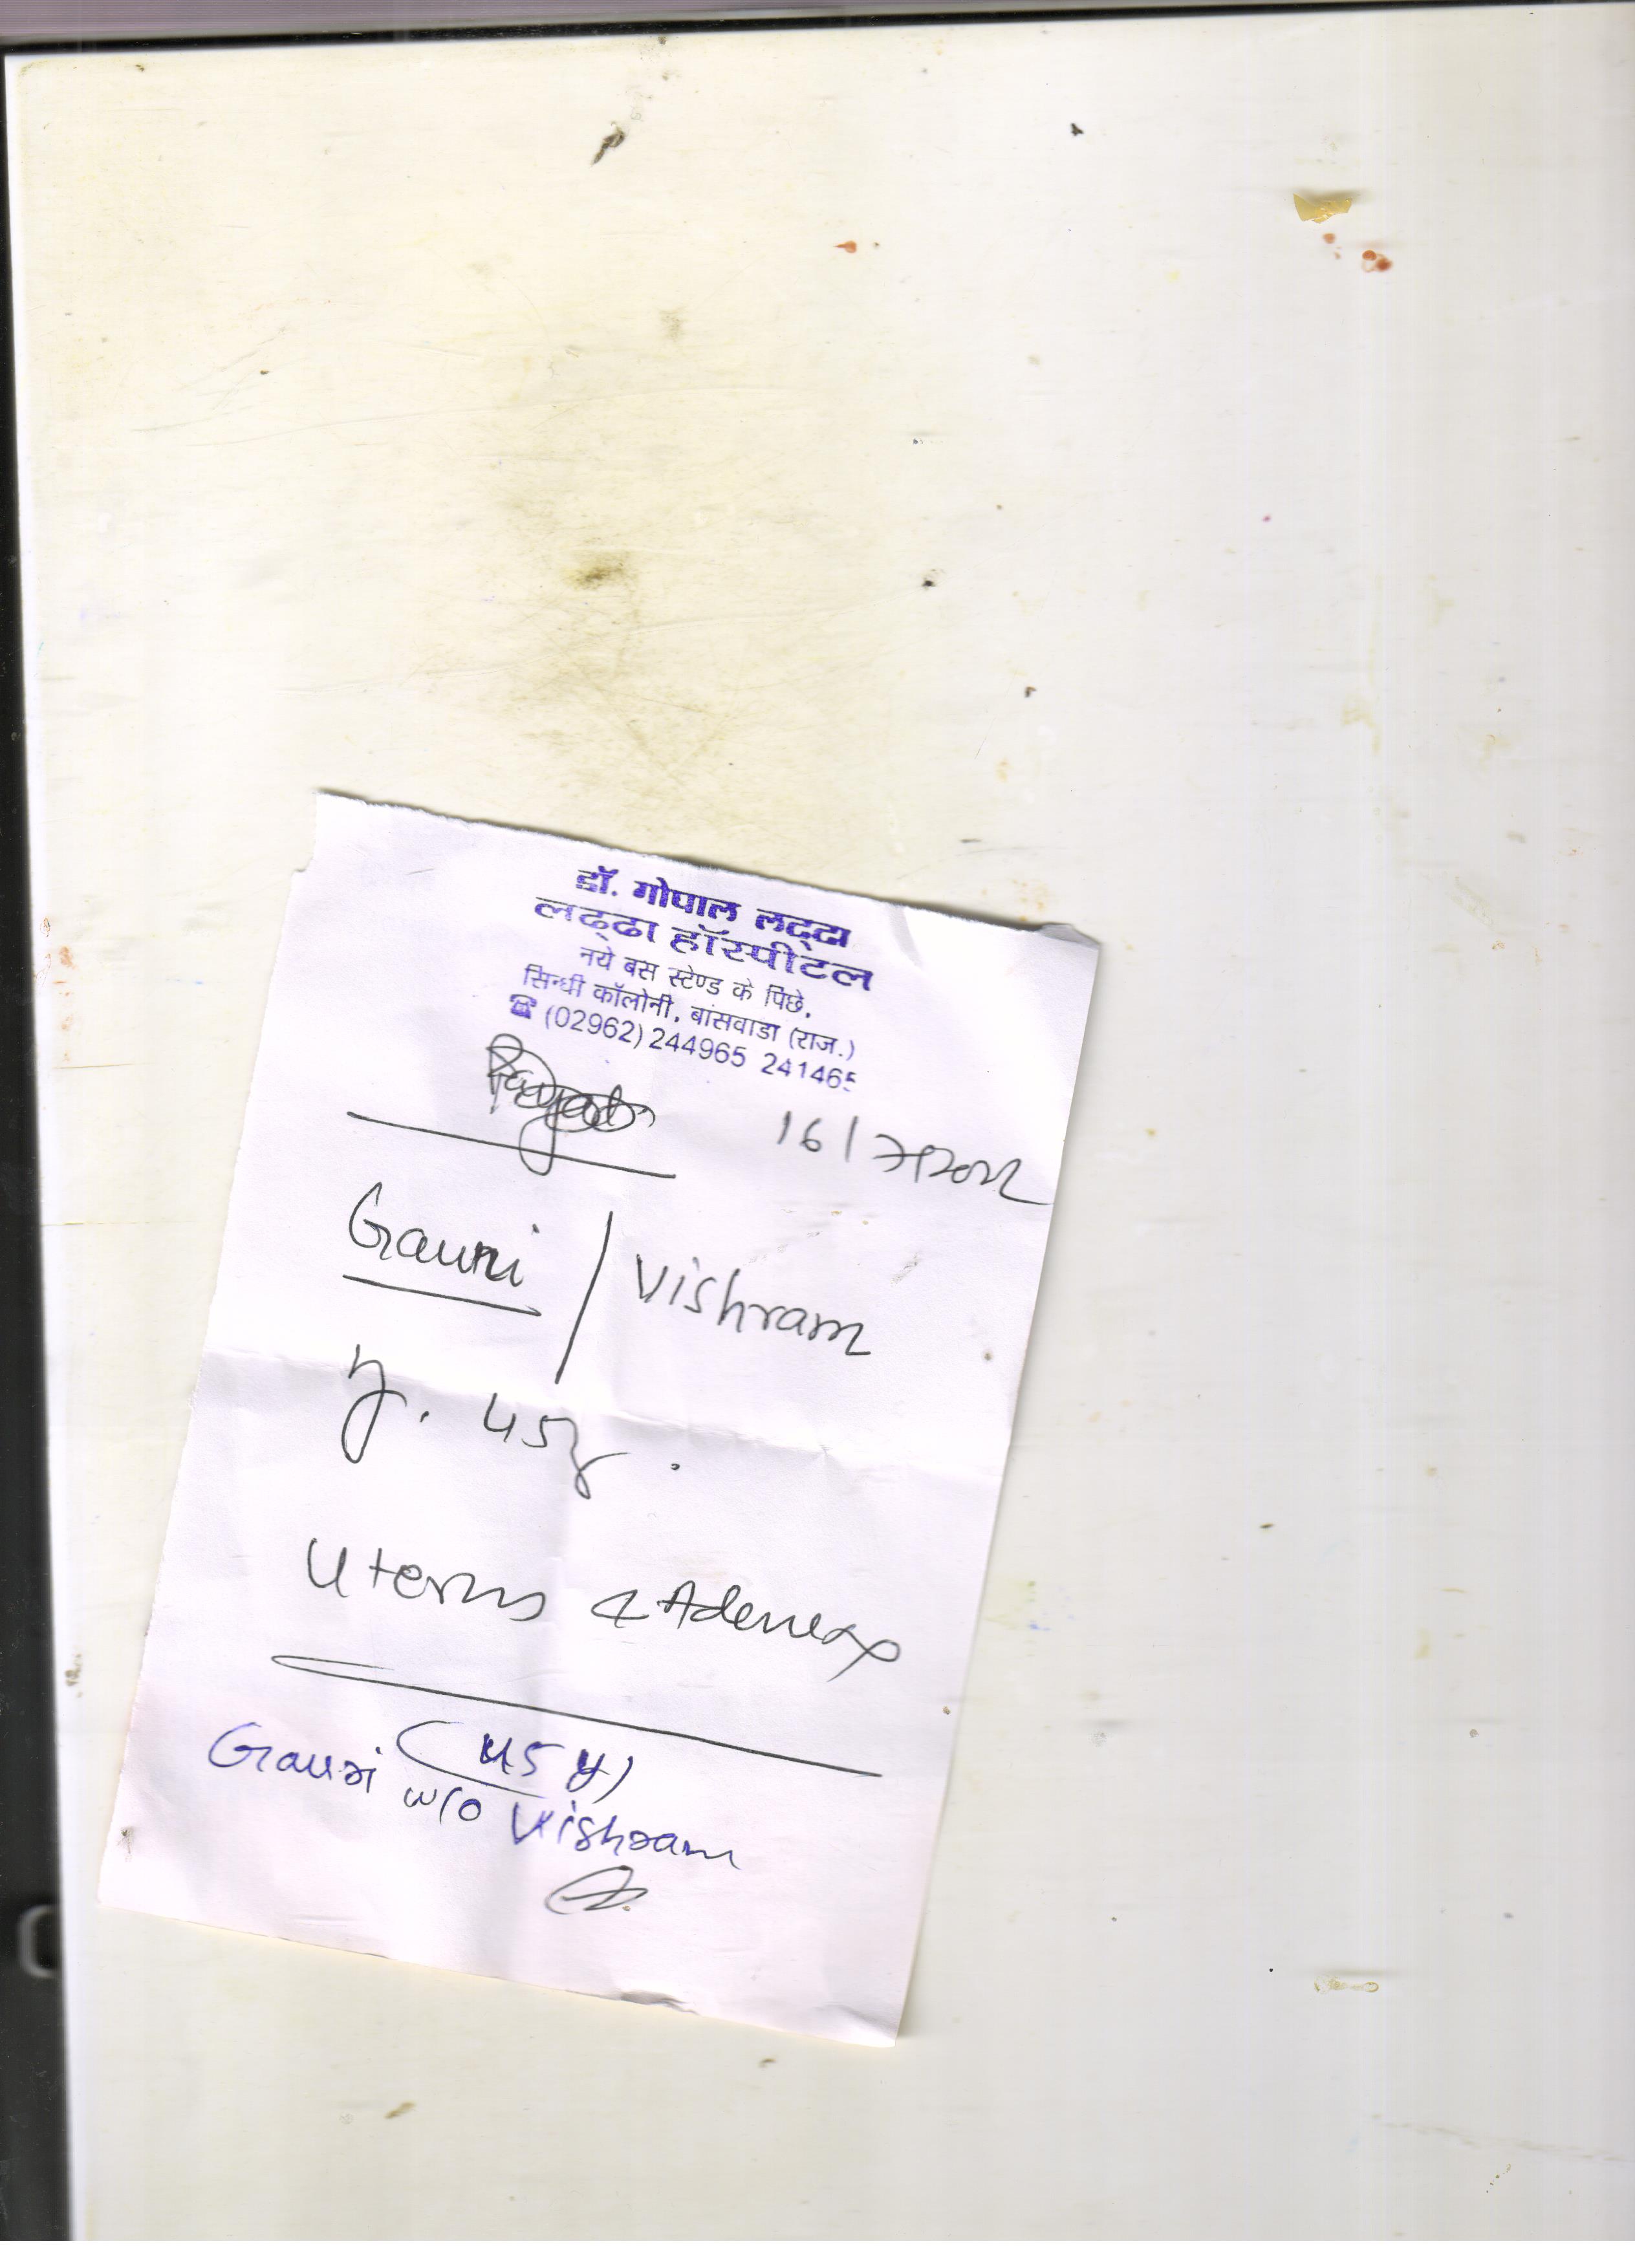 डॉ. गोपाल लद्‌ढा
लढ्‌ढा हॉस्पीटल
नये बस स्टेण्ड के पिछे,
सिन्धी कॉलोनी, बांसवाडा (राज.)
☎ (02962) 244965 241465
16/
Gauri / Vishram
y. 45y.
Uterus & Adenexa
(45 y)
Gauri w/o Vishram